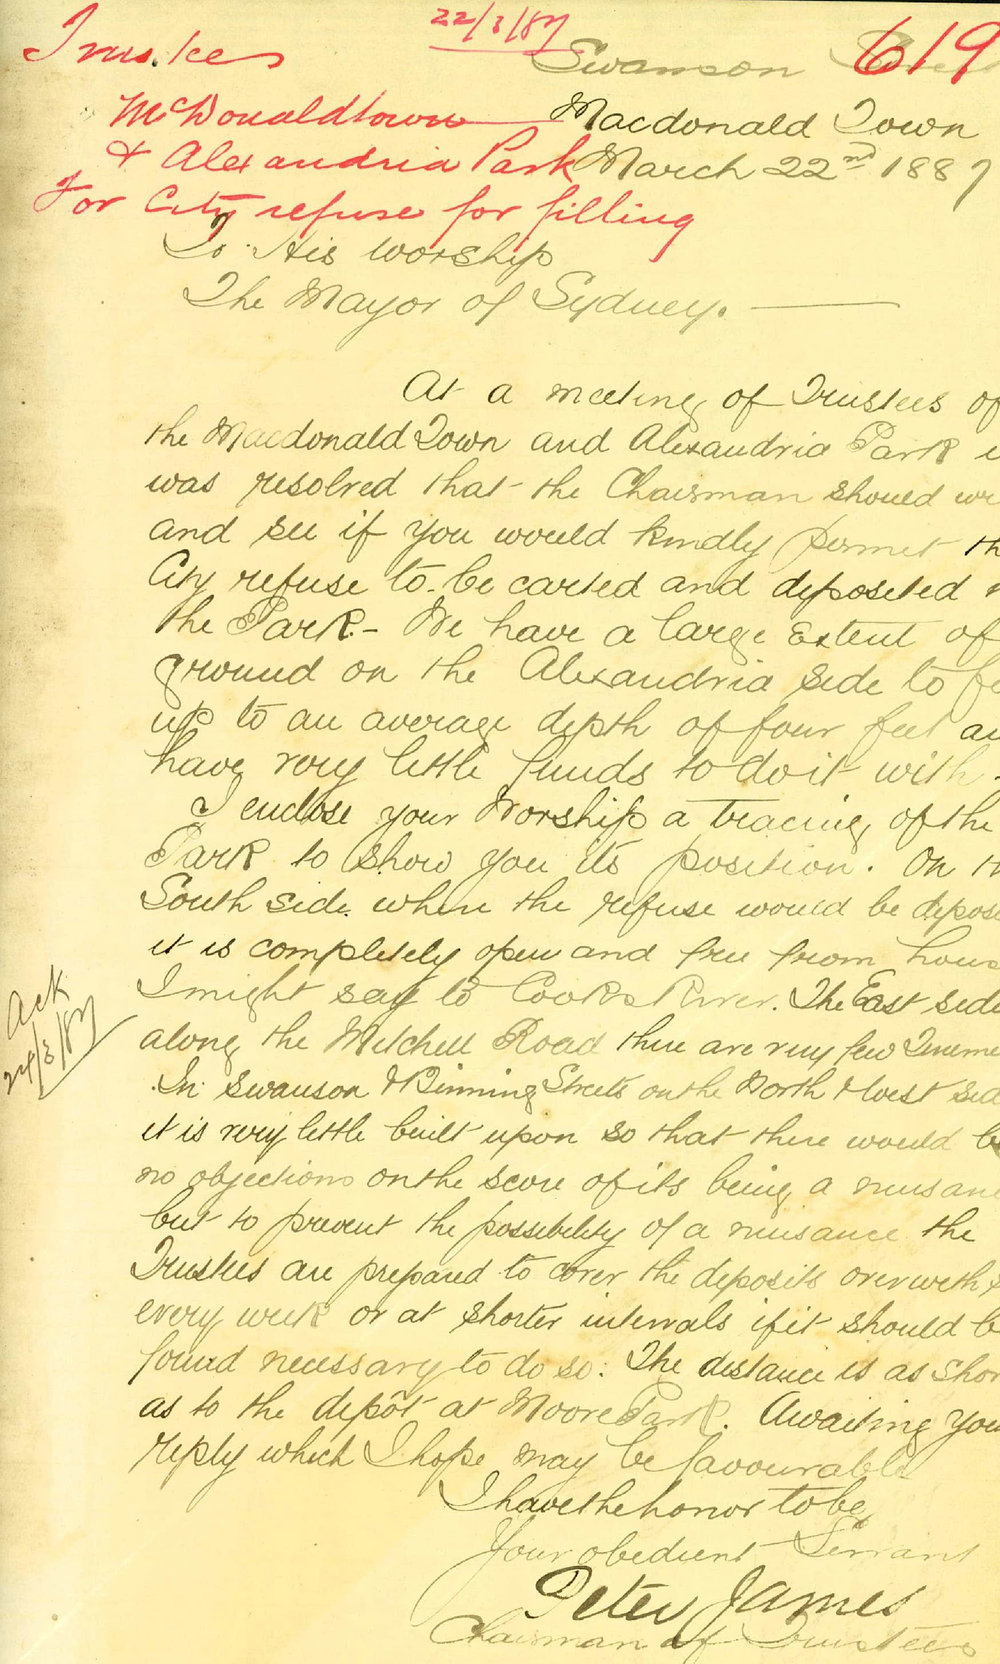 22/3/87
619
Trustees
McDonaldtown
& Alexandria Park
For City refuse for filling
Swanson Street
Macdonald Town
March 22nd 1887
To His worship
The Mayor of Sydney.
At a meeting of Trustees of
the Macdonald Town and Alexandria Park i
was resolved that the Chairman should wr
and see if you would kindly permit th
City refuse to be carted and deposited
the Park. – We have a large Extent of
ground on the Alexandria side to fi
up to an average depth of four feet an
have very little funds to do it with.
I enclose your Worship a tracing of the
Park to show you its position. On th
South side where the refuse would be depos
it is completely open and free from hous
I might say to Cooks River. The East side
along the Mitchell Road there are very few Teneme
In Swanson & Binning Streets on the North & West sid
it is very little built upon so that there would be
no objections on the score of its being a nuisan
but to prevent the possibility of a nuisance the
Trustees are prepared to cover the deposits over with
every week or at shorter intervals if it should b
found necessary to do so: The distance is as shor
as to the depôt at Moore Park. Awaiting you
reply which I hope may be favourable
I have the honor to be
Your obedient Servant
Peter James
Chairman of Trustees
Ack
24/3/87